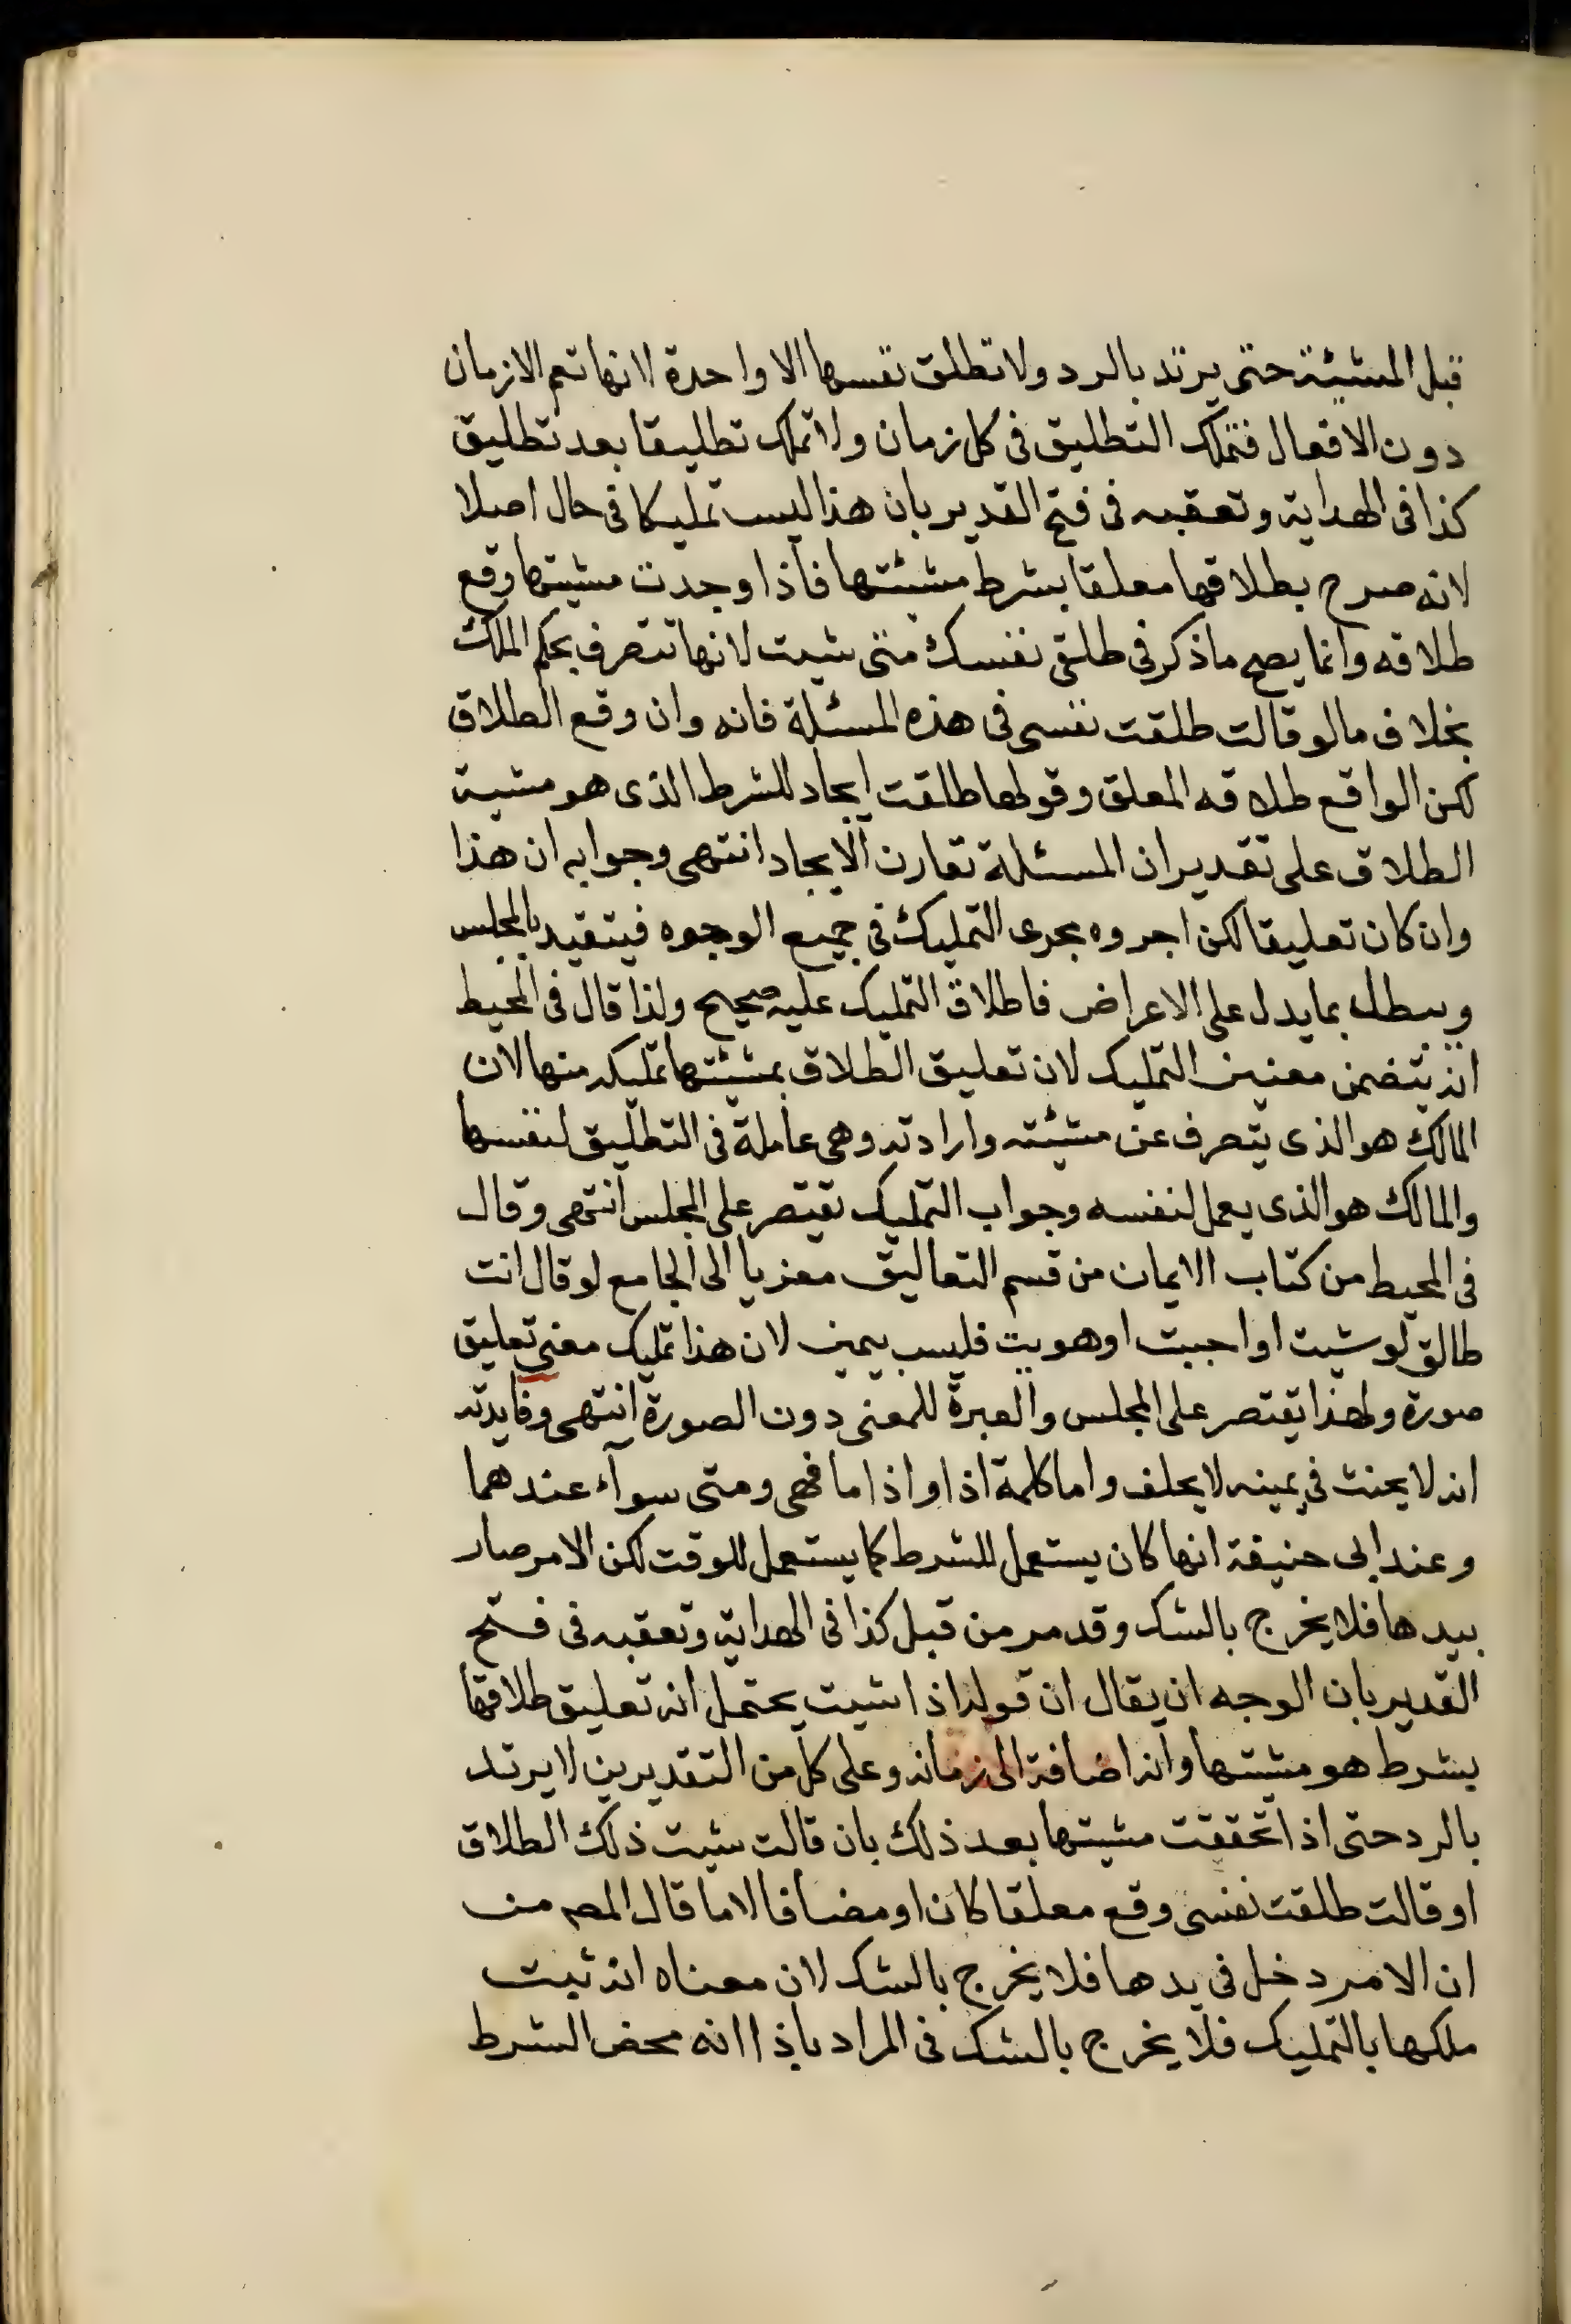 قبل المشيئة حتى يرتد بالرد ولا تطلق نفسها الا واحدة لانها تعم الازمان
دون الافعال فتملك التطليق فى كل زمان ولا تملك تطليقا بعد تطليق
كذا فى الهداية وتعقبه فى فتح القدير بان هذا ليس تمليكا فى حال اصلا
لانه صرح بطلاقها معلقا بشرط مشيئتها فاذا وجدت مشيتها وقع
طلاقه وانما يصح ما ذكر فى طلقى نفسك متى شيت لانها تتصرف بحكم الملك
بخلاف ما لو قالت طلقت نفسى فى هذه المسئلة فانه وان وقع الطلاق
لكن الواقع طلاقه المعلق وقولها طلقت ايجاد للشرط الذى هو مشية
الطلاق على تقدير ان المسئلة تقارن الايجاد انتهى وجوابه ان هذا
وان كان تعليقا لكن اجروه مجرى التمليك فى جميع الوجوه فيتقيد بالمجلس
ويبطل بما يدل على الاعراض فاطلاق التمليك عليه صحيح ولذا قال فى المحيط
انه يتضمن معنين التمليك لان تعليق الطلاق بمشيئتها تمليكه منها لان
المالك هو الذى يتصرف عن مشيئته وارادته وهى عاملة فى التطليق لنفسها
والمالك هو الذى يعمل لنفسه وجواب التمليك تقتصر على المجلس انتهى وقال
فى المحيط من كتاب الايمان من قسم التعاليق معزيا الى الجامع لو قال انت
طالق لو شيت او احببت او هويت فليس بيمين لان هذا تمليك معنى تعليق
صورة ولهذا يقتصر على المجلس والعبرة للمعنى دون الصورة انتهى وفايدته
انه لا يحنث فى يمينه لا يحلف واما كلمة اذا واذا ما فهى ومتى سوآء عندهما
وعند ابى حنيفة انها كان يستعمل للشرط كما يستعمل للوقت لكن الامر صار
بيدها فلا يخرج بالشك وقد مر من قبل كذا فى الهداية وتعقبه فى فتح
القدير بان الوجه ان يقال ان قوله اذا شيت يحتمل انه تعليق طلاقها
بشرط هو مشيتها وانه اضافة الى زمانه وعلى كل من التقديرين لا يرتد
بالرد حتى اذا تحققت مشيتها بعد ذلك بان قالت شيت ذلك الطلاق
او قالت طلقت نفسى وقع معلقا كان او مضافا لا ما قال المصـ من
ان الامر دخل فى يدها فلا يخرج بالشك لان معناه انه ثبت
ملكها بالتمليك فلا يخرج بالشك فى المراد باذا انه محض الشرط